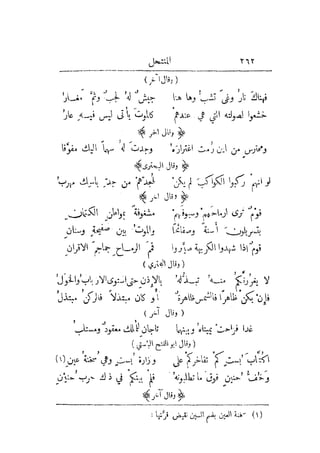 ٢٦٢ المنتحل
( وقال آخر )
فهناك نار وغى تشب وها هنا جيش له لجب وثم مغار
خشعوا لصولته التي هي عندهم كالموت يأتي ليس فيه عار
( وقال آخر )
ومحترس من اين رمت اغتراره وجدت له سهما اليك مفوقا
( وقال البحتري )
لو انهم ركبوا الكواكب لم يكن لمجدهم من جد بأسك مهرب
( وقال آخر )
قوم ترى ارماحهم وسيوفهم مشغوفة بمواطن الكتمان
يتسربلون اسنة وصفائحا والموت بين صفيحة وسنان
قوم اذا شهدوا الكريهة صيروا قمم الرماح جماجم الاقران
( وقال البحتري )
لا يغررنكم منه تبذله بالاذن حتى استوى الارباب والخول
فإن يكن ظاهرا فالشمس ظاهرة أو كان مبتذلا فالركن مبتذل
( وقال آخر )
غدا فراحت يمناه وبينها تاجان للملك معقود ومستلب
( وقال ابو الفتح البستي )
اكتاب بست كم تفاخركم على وزارة بست وهي سخنة عين (١)
وخف حنين فوق ما تطلبونه فلم بينكم في ذاك حرب حنين
( وقال آخر )
(١) سخنة العين بضم السين نقيض قرتها :